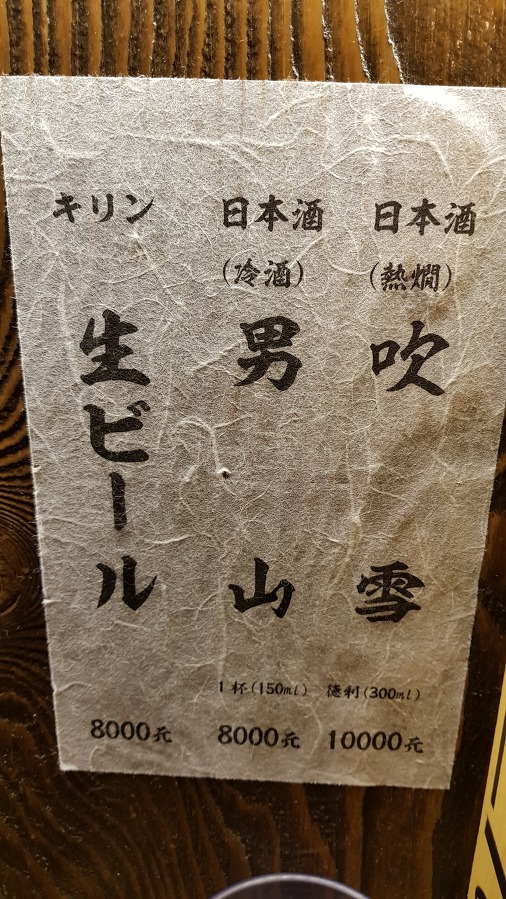 日本酒
(熱燗)
吹雪
徳利(300ml)
10000元
日本酒
(冷酒)
男山
1杯(150ml)
8000元
キリン
生ビール
8000元